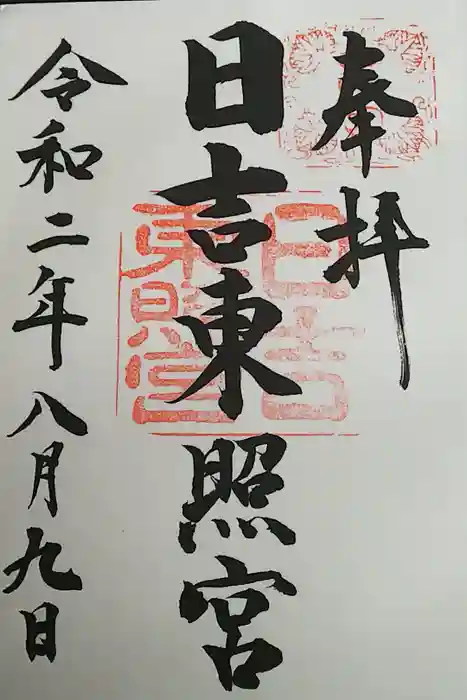 奉拝
日吉東照宮
日吉東照宮
令和二年八月九日